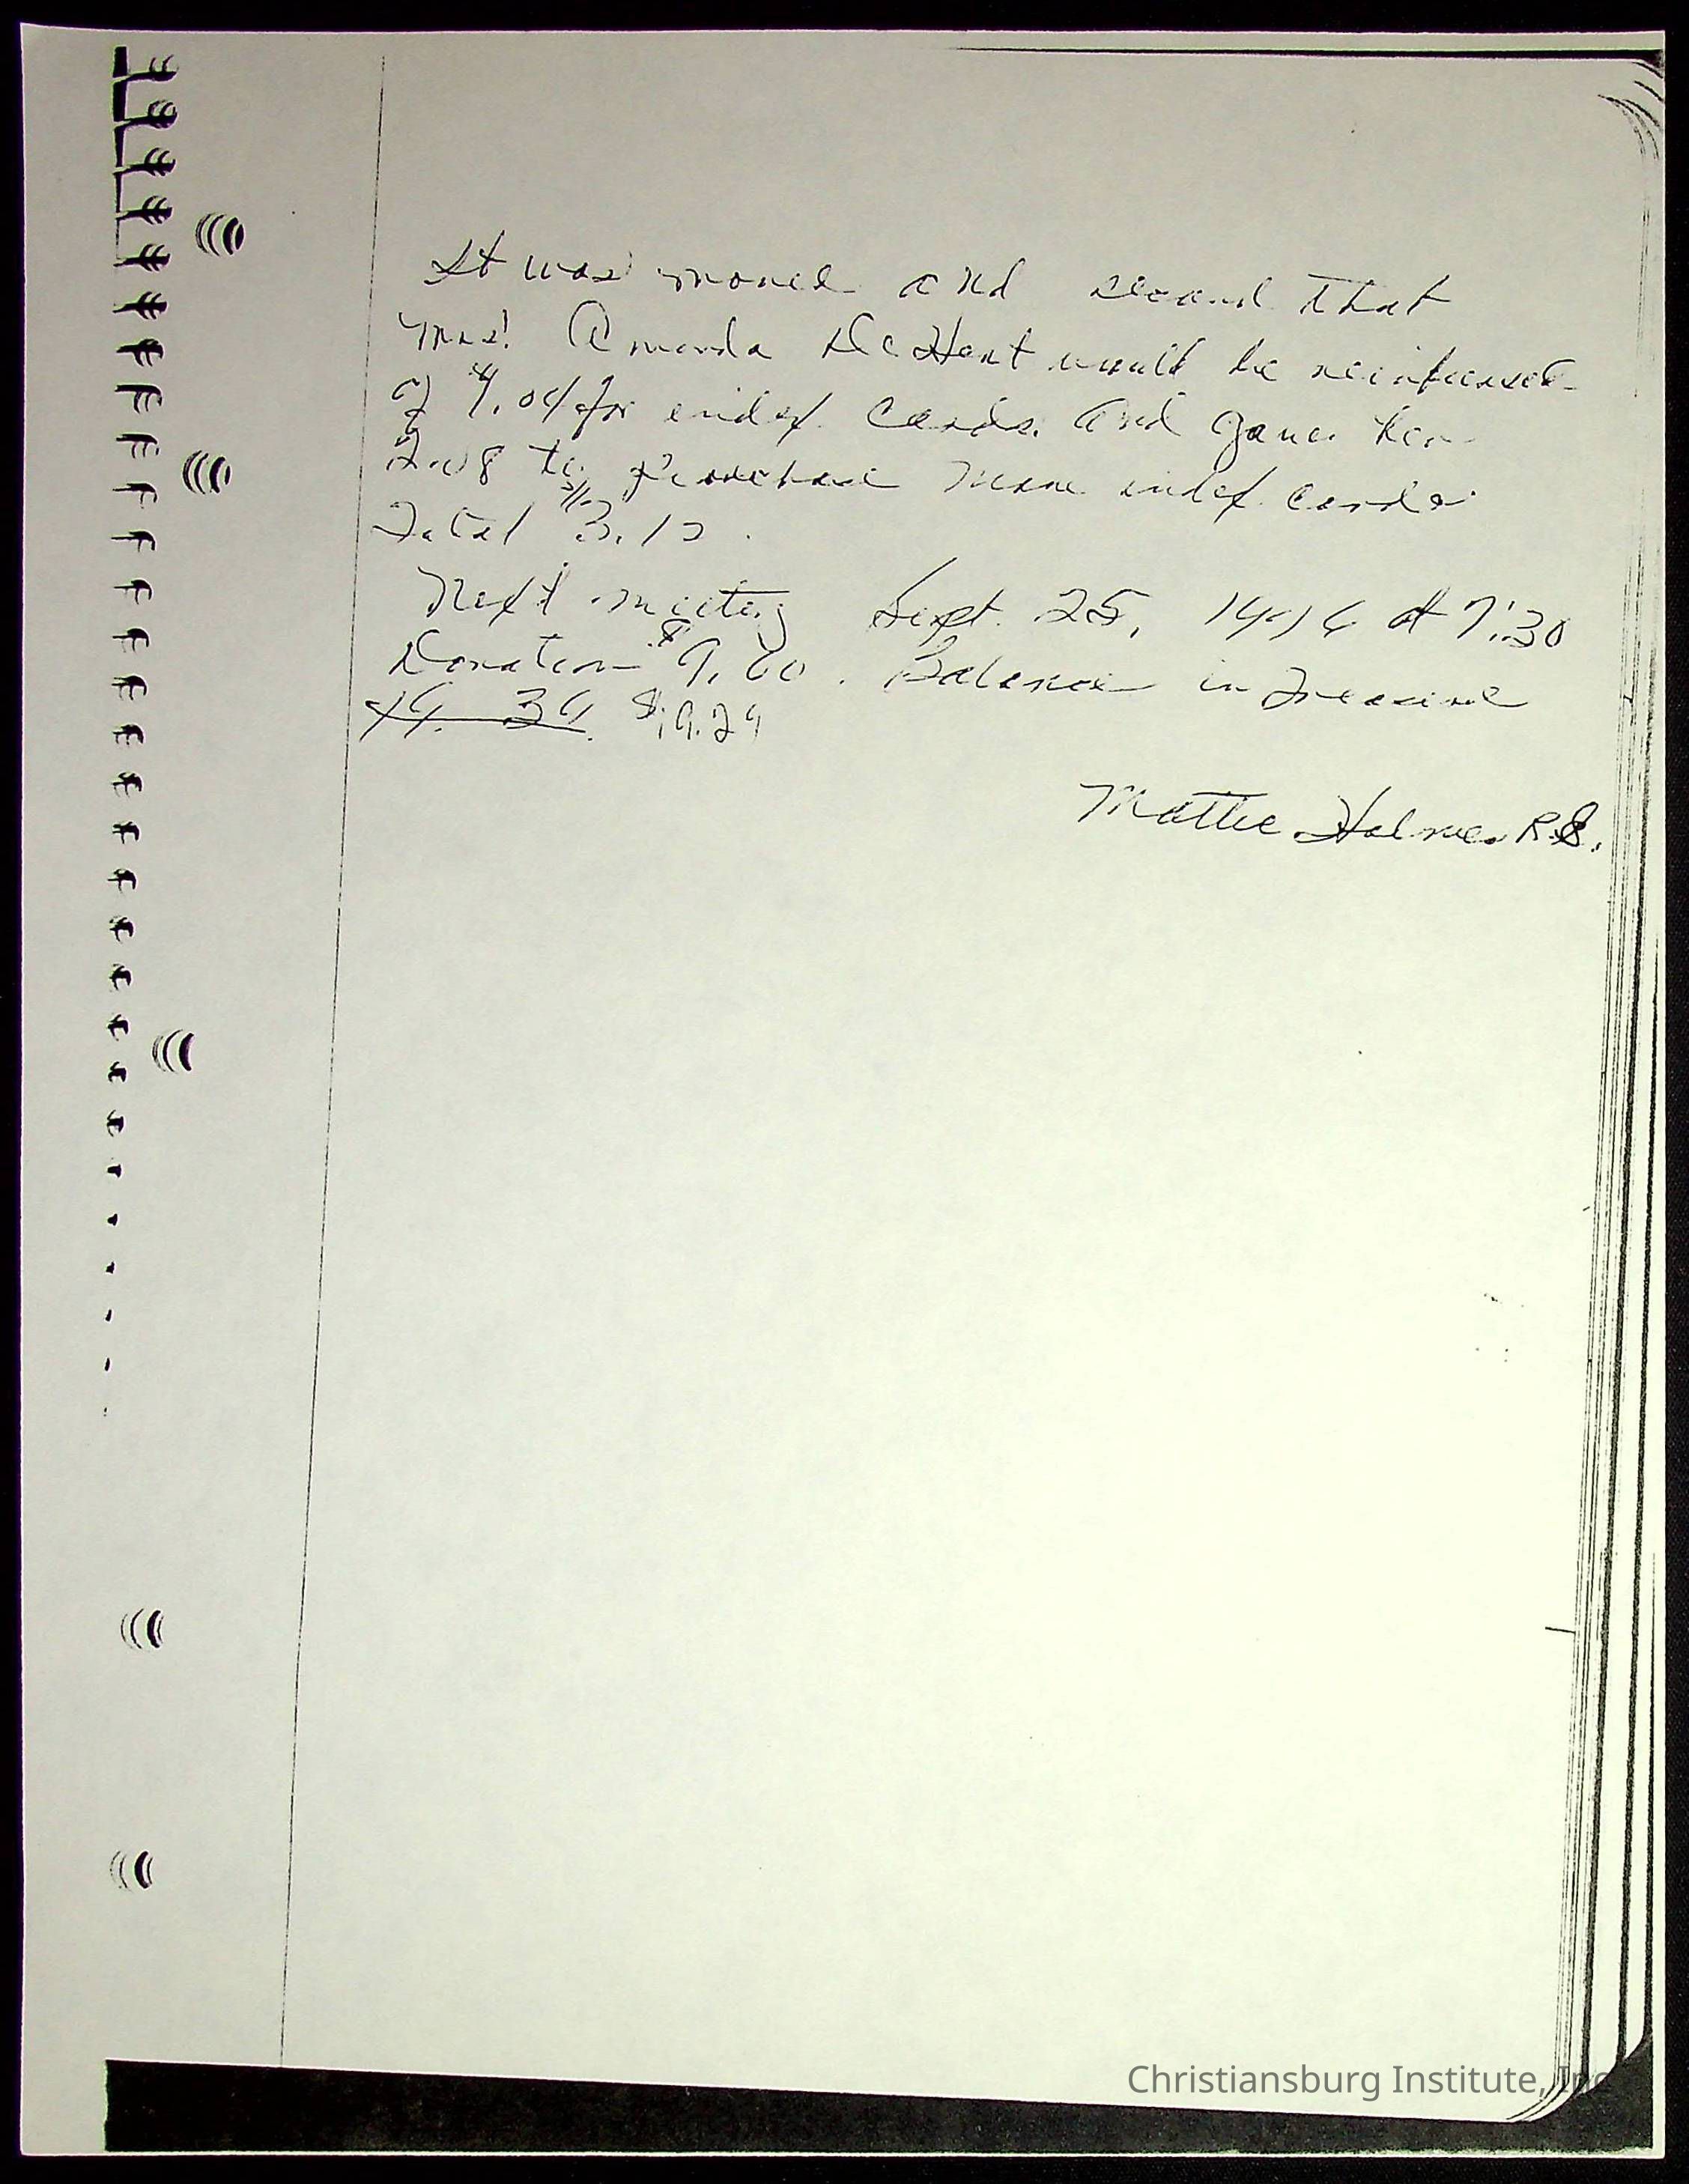 It was moved and second that
Mrs. Amanda DeHart would be reimbursed
of $1.04 for index Cards. And gave her
2.08 to purchase more index cards
Total $3.12.
Next meeting Sept. 25, 1976 at 7:30
Donation $9.60. Balance in Treasure
$19.29
Mattie Holmes R.S.
Christiansburg Institute, Inc